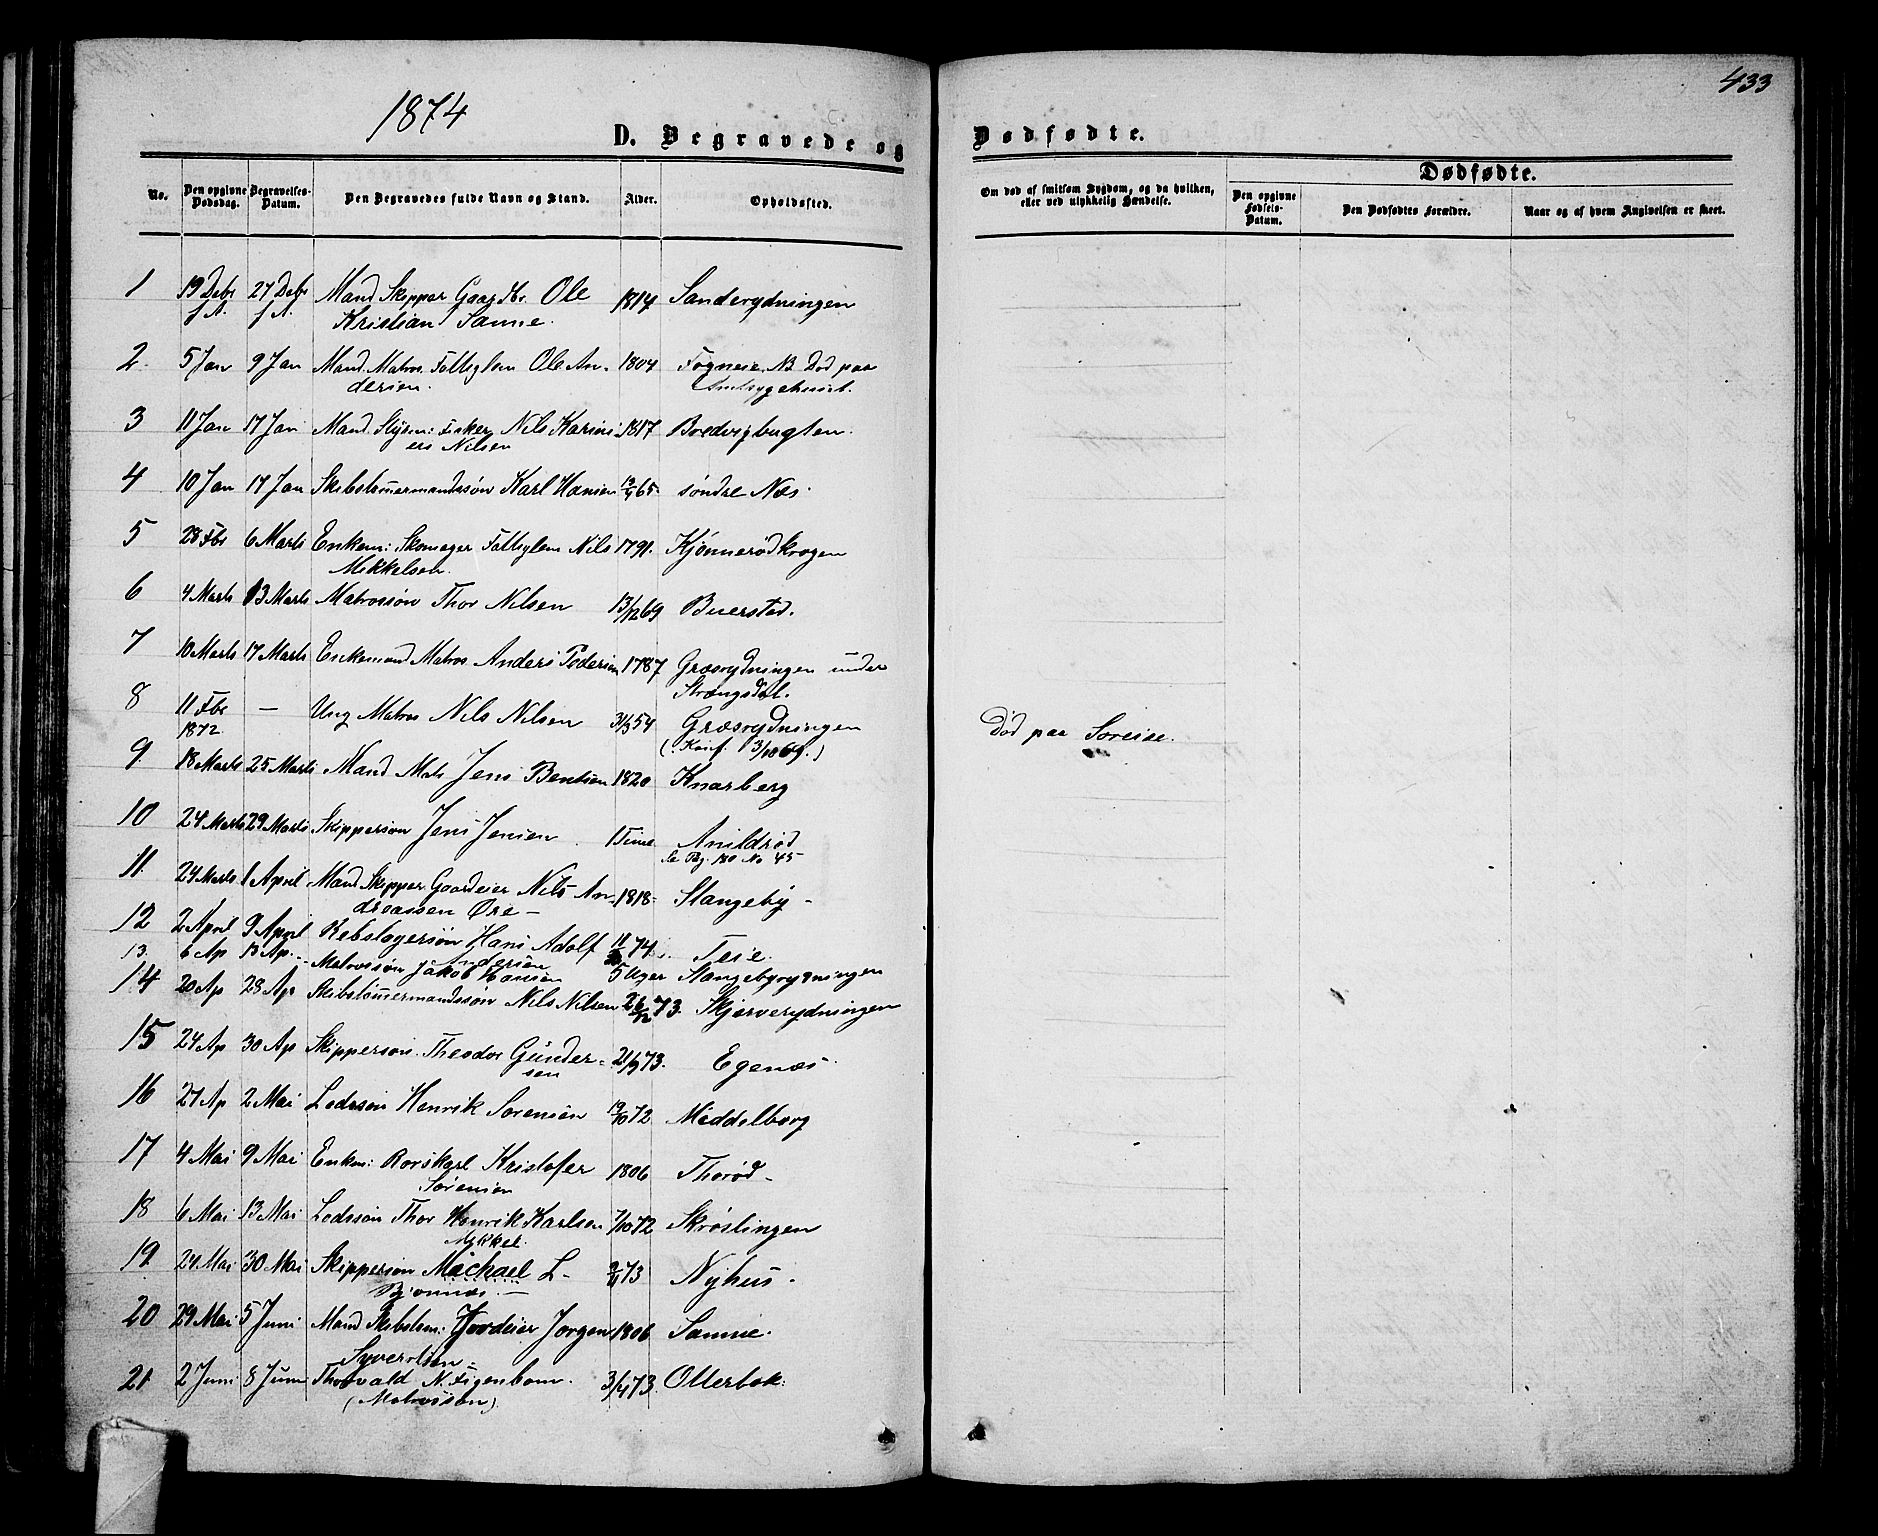 1874
433
D. Begravede og Dødfødte.
No. Den opgivne Dødsdag. Begravelses-Datum. Den Begravedes fulde Navn og Stand. Alder. Opholdssted.
Om død af smitsom Sygdom, og da hvilken, eller ved ulykkelig Hændelse.
Dødfødte.
Den opgivne Fødsels-Datum. Den Dødfødtes Forældre. Naar og af hvem Angivelsen er skeet.
1 19 Debr f A. 27 Debr f A. Mand Skipper Gaardbr. Ole 1814 Sanderydningen
Kristian Sanne.
2. 5 Jan 9 Jan Mand. Matros. Fattiglem Ole An- 1804 Fogneie. NB Død paa
dersen. Amtsygehuset.
3 11 Jan 17 Jan Mand. Nils Karini- 1817 Bredvigbugten.
us Nilsen
4 10 Jan 17 Jan Skibstømmermandssøn Karl Hansen 65. søndre Næs.
5 28 Fbr 6 Marts Enkem: Skomager Fattiglem Nils 1791. Kjønnerødkrogen
Mikkelsen.
6 4 Marts 13 Marts Matrossøn Thor Nilsen 13/12 69 Buerstad.
7 10 Marts 17 Marts Enkemand Matros Anders Pedersen 1787 Græsrydningen under
Strængsdal.
8 11 Fbr — Ung Matros Nils Nilsen 31/3 54 Græsrydningen Død paa Soreise.
1872. (Konf. 3/10 69.)
9 18 Marts 25 Marts Mand Mats Jens Bentsen 1820 Knarberg
10 24 Marts 29 Marts Skippersøn Jens Jensen 1 Time Anildrød
Se Pag. 130 No 45
11. 24 Marts 1 April Mand Skipper Gaardeier Nils An- 1818- Stangeby -
dreassen Øre -
12 2 April 9 April Rebslagersøn Hans Adolf 74. Teie.
Andersen
13. 6 Ap 13 Ap. Matrossøn Jakob Hansen 5 Uger Stangebyrydningen
14 20 Ap 28 Ap Skibstømmermandssøn Nils Nilsen 26/12 73. Skjærverydningen
15 24 Ap 30 Ap Skippersøn. Theodor Gunder- 21/9 73. Egenæs
sen
16 27 Ap 2 Mai Lodssøn Henrik Sørensen 19/10 72 Middelborg
17 4 Mai 9 Mai Enkm: Rorskarl Kristofer 1806 Thorød -
Sørensen
18 6 Mai 13 Mai Lodssøn Thor Henrik Karlsen 7/10 72 Skrøslingen
Mikkel
19 24 Mai 30 Mai Skippersøn Michael L- 73 Nyhus.
Bjønnes. -
20 29 Mai 5 Juni Mand Skibstøm: Jordeier Jørgen 1806 Sanne.
Syvertsen -
21 2 Juni 8 Juni Thorvald N. Figenbom. 3/4 73. Ollerbok.
(Matrossøn)